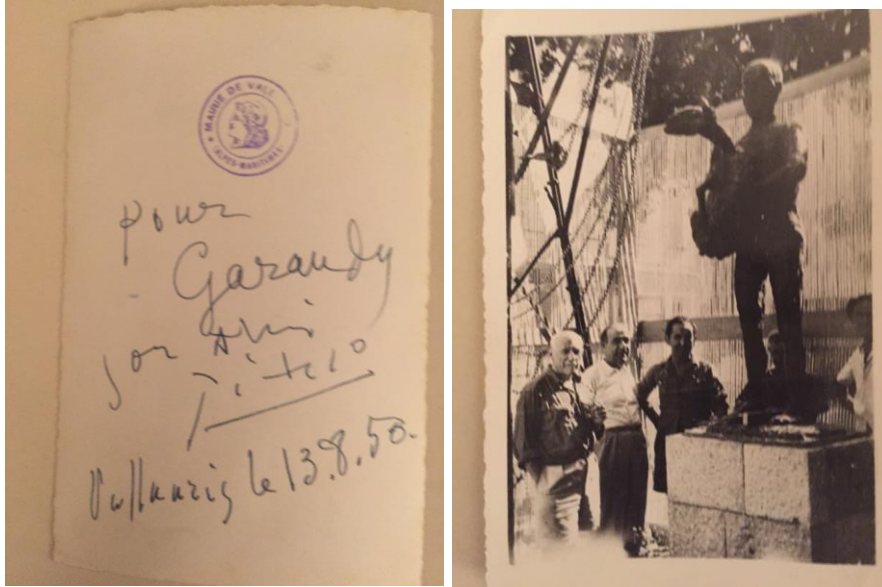 MAIRIE DE VALL
(ALPES-MARITIMES)
pour
Garaudy
son Ami
Picasso
Vallauris le 13.8.50.